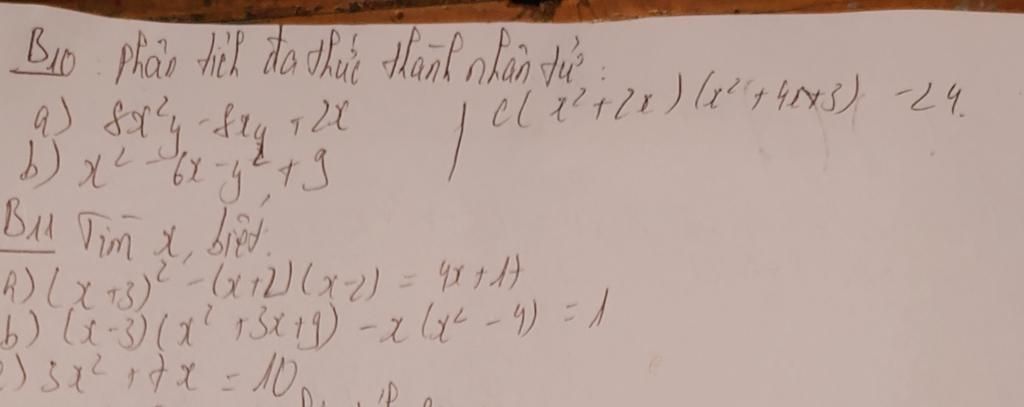 B10: phân tích đa thức thành nhân tử:
a) 8x²y - 8xy + 2x
b) x² - 6x - y² + 9
c) (x² + 2x)(x² + 4x + 3) - 24.
B11 Tìm x, biết:
a) (x + 3)² - (x + 2)(x - 2) = 4x + 17
b) (x - 3)(x² + 3x + 9) - x(x² - 4) = 1
c) 3x² + 7x = 10